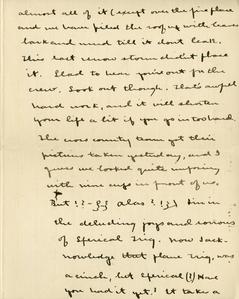 almost all of it (except over the fire place
and we have piled the roof up with leaves
bark and mud till it don't leak.
This last snow storm didn't phase
it. Glad to hear you're out for the
crew. Look out though. That's awful
hard work, and it will shorten
your life a bit if you go in too hard.
The cross country team got their
pictures taken yesterday, and I
guess we looked quite imposing
with nine cups in front of us.
But !? - Alas ? !
in
the deluding joys and sorrows
of Sperical Trig. Now I ack-
nowledge that plane Trig. was
a cinch, but Sperical (?) Have
you had it yet? It take a